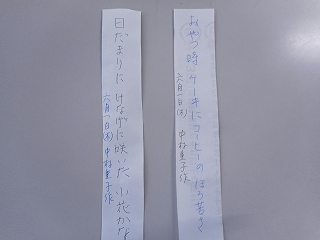 おやつ時 ケーキにコーヒーのほろ苦さ
六月一日(木) 中村重子作
日だまりに けなげに咲いた 小花かな
六月一日(木) 中村重子作